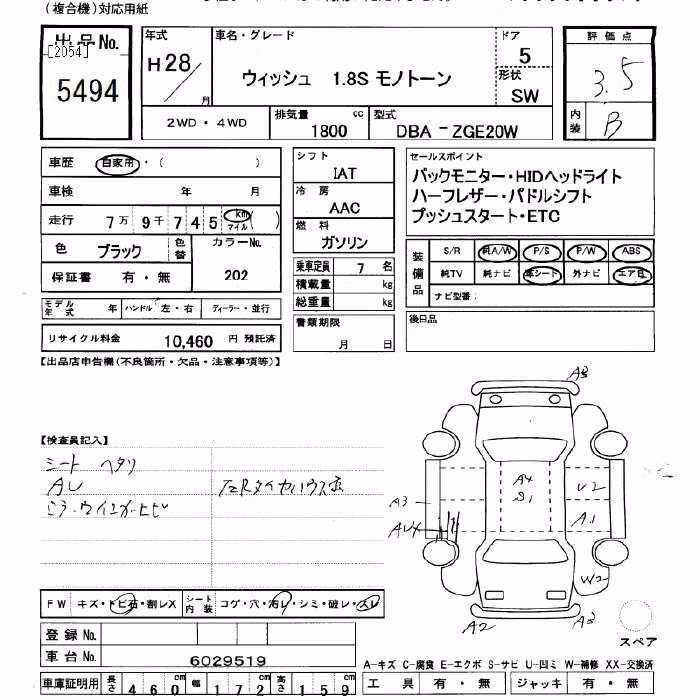 (複合機)対応用紙
出品No.
[2054]
5494
年式
H28/月
車名・グレード
ウィッシュ 1.8S モノトーン
ドア
5
形状
SW
評価点
3.5
内装
B
2WD・4WD
排気量 cc
1800
型式
DBA-ZGE20W
車歴 自家用・( )
車検 年 月
走行 7万9千745 km マイル ( )
色 ブラック
色替
カラーNo.
202
保証書 有・無
シフト
IAT
冷房
AAC
燃料
ガソリン
乗車定員 7 名
積載量 kg
総重量 kg
書類期限
月 日
セールスポイント
バックモニター・HIDヘッドライト
ハーフレザー・パドルシフト
プッシュスタート・ETC
装備品
S/R 純A/W P/S P/W ABS
純TV 純ナビ 革シート 外ナビ エアB
ナビ型番:
後日品
モデル年式 年 ハンドル 左・右 ディーラー・並行
リサイクル料金 10,460 円 預託済
【出品店申告欄(不良箇所・欠品・注意事項等)】
【検査員記入】
シート ヘタリ
AU
ミラーウインカーヒビ
A3
A4
S1
U2
A3
A1
W2
A2
A2
FW キズ・トビ石・割レX
シート内装 コゲ・穴・汚レ・シミ・破レ・スレ
登録No.
車台No. 6029519
車庫証明用 長さ 460cm 幅 172cm 高さ 159cm
スペア
A-キズ C-腐食 E-エクボ S-サビ U-凹ミ W-補修 XX-交換済
工具 有・無 ジャッキ 有・無